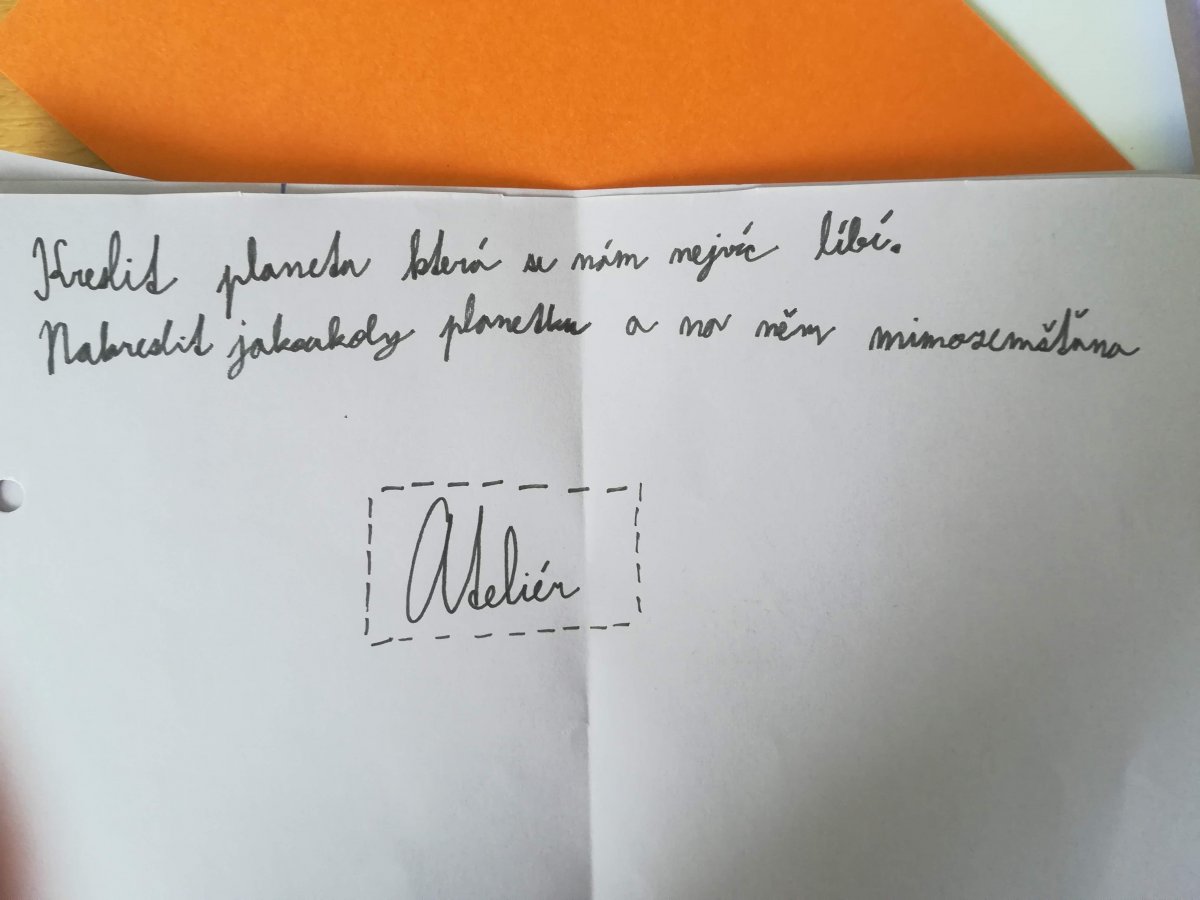 Kreslit planeta která se nám nejvíc líbí.
Nakreslit planetku a na něm mimozemšťana
Ateliér